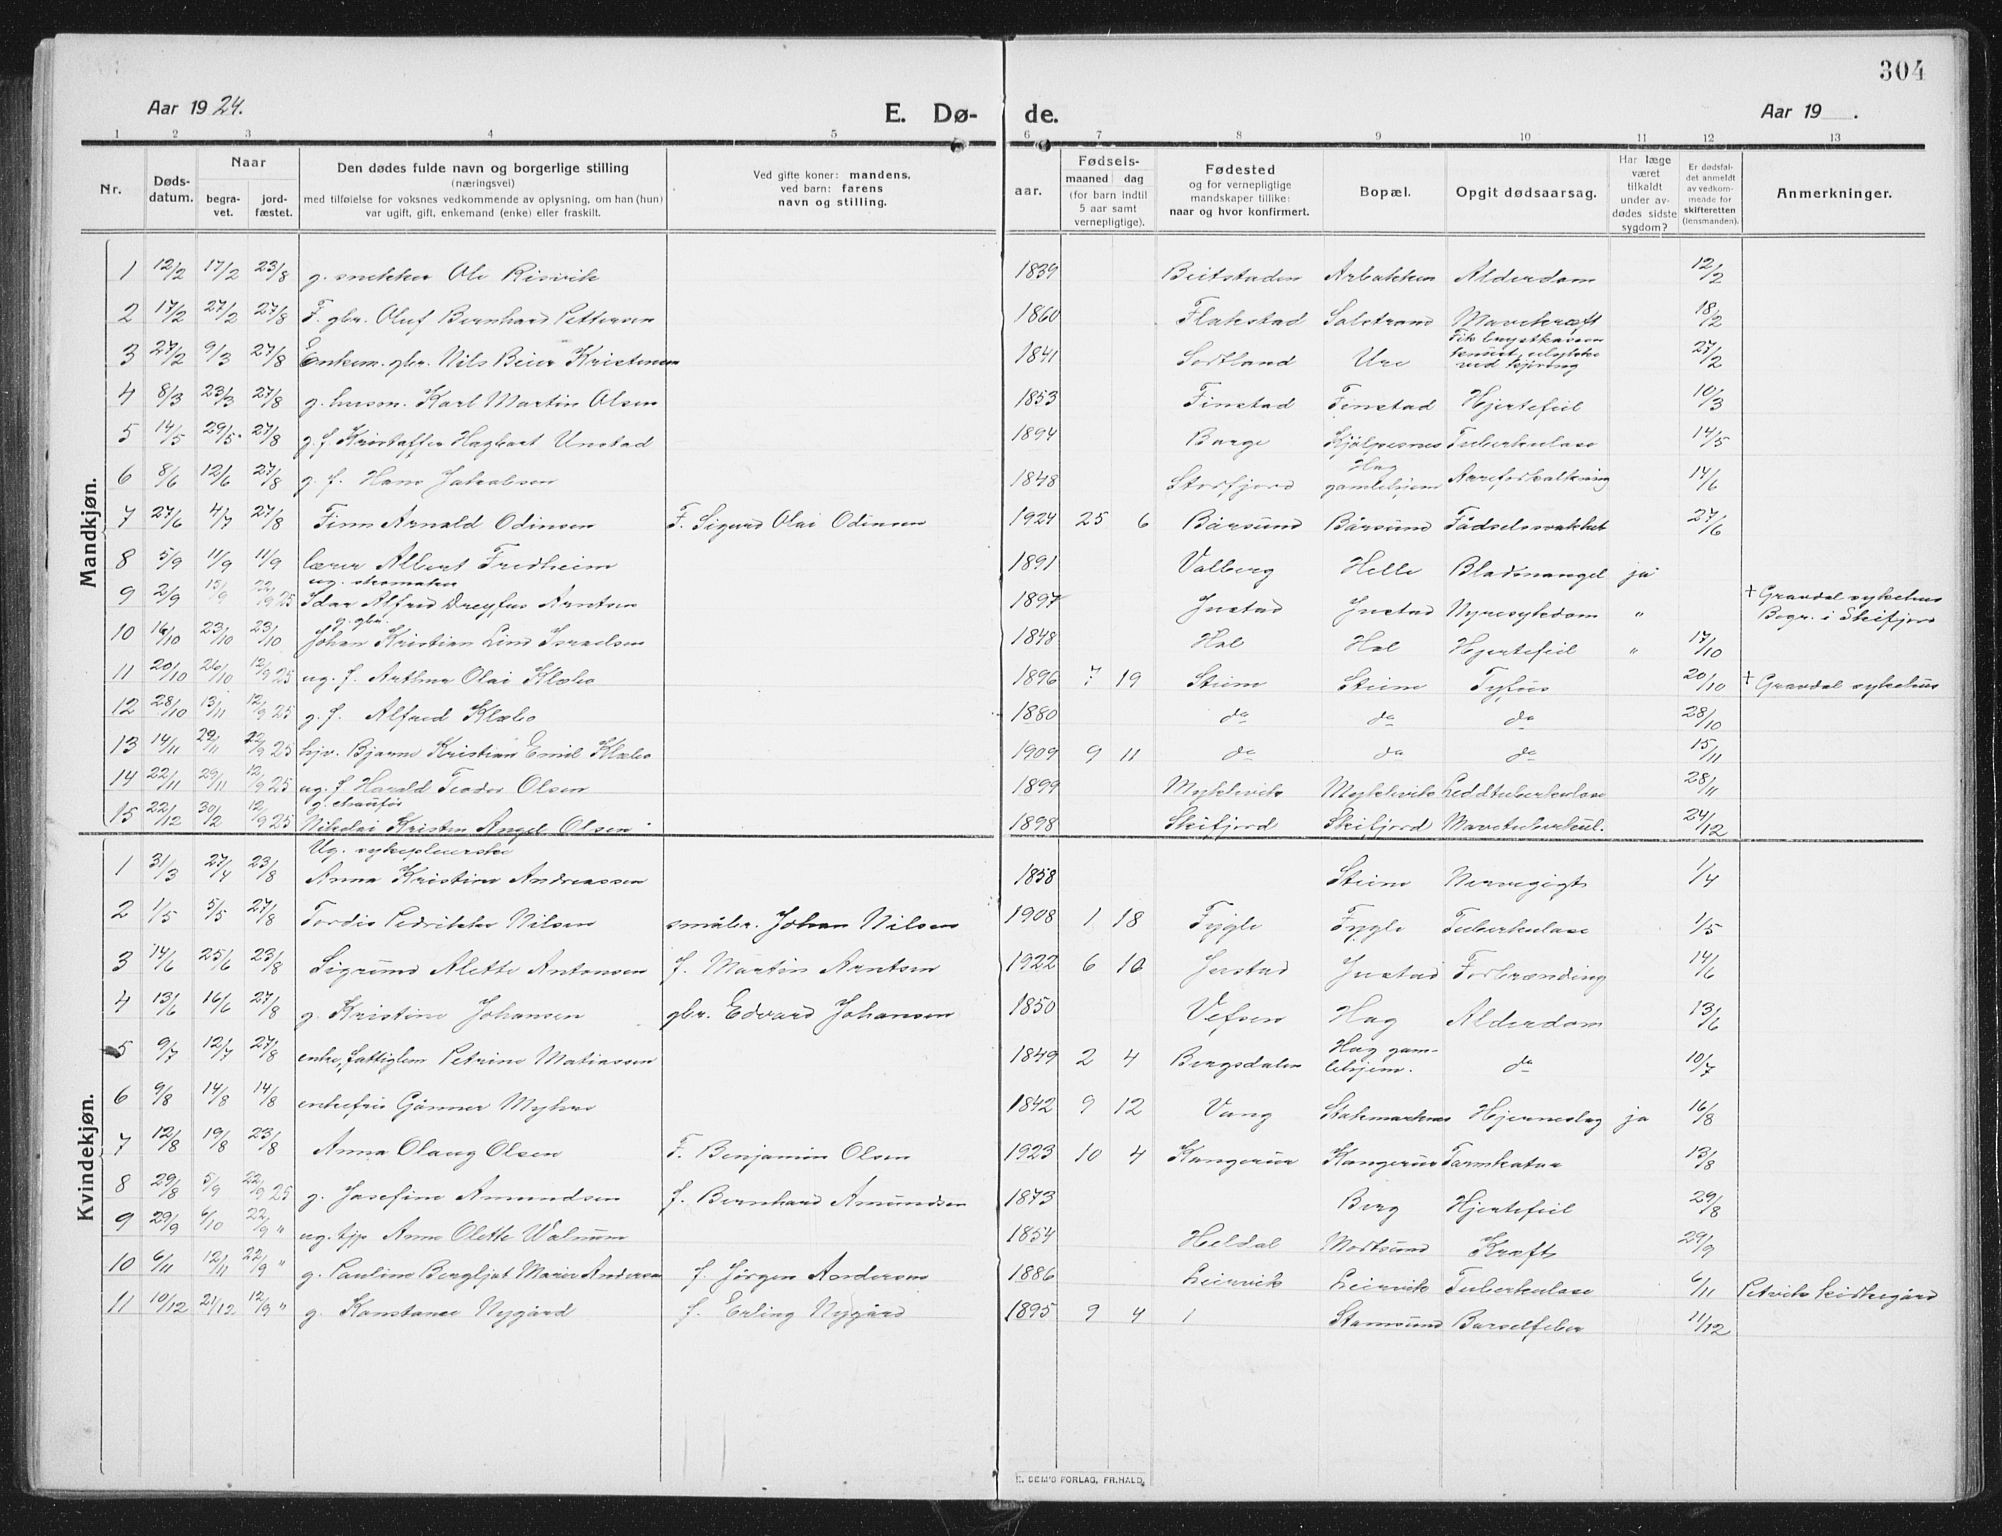 304
Aar 1924.
E. Dø-
de.
Aar 19 .
1 2 3 4 5 6 7 8 9 10 11 12 13
Nr.
Døds-
datum.
Naar
begra-
vet.
jord-
fæstet.
Den dødes fulde navn og borgerlige stilling
(næringsvei)
med tilføielse for voksnes vedkommende av oplysning, om han (hun)
var ugift, gift, enkemand (enke) eller fraskilt.
Ved gifte koner: mandens.
ved barn: farens
navn og stilling.
aar.
Fødsels-
maaned dag
(for barn indtil
5 aar samt
vernepligtige).
Fødested
og for vernepligtige
mandskaper tillike:
naar og hvor konfirmert.
Bopæl.
Opgit dødsaarsag.
Har læge
været
tilkaldt
under av-
dødes sidste
sygdom?
Er dødsfal-
det anmeldt
av vedkom-
mende for
skifteretten
(lensmanden).
Anmerkninger.
Mandkjøn.
1 12/2 17/2 23/8 g. snekker Ole Risvik 1839 Beitstaden Arbakken Alderdom 12/2
2 17/2 27/2 27/8 F. gbr. Oluf Bernhard Pettersen 1860 Flakstad Salstrand Mavekræft 18/2
3 27/2 9/3 27/8 Enkem. gbr. Nils Beier Kristensen 1841 Sortland Ure Fik brystkassen
knust, ulykke
ved kjøring 27/2
4 8/3 23/3 27/8 g. husm. Karl Martin Olsen 1853 Finstad Finstad Hjertefeil 10/3
5 14/5 29/5 27/8 g. f. Kristoffer Hagbart Unstad 1894 Borge Tuberkulose 14/5
6 8/6 12/6 27/8 g. f. Hans Jakobsen 1848 Storfjord Hag
gamlehjem Aareforkalkning 14/6
7 27/6 4/7 27/8 Finn Arnald Odinsen F. Sigurd Olai Odinsen 1924 25 6 Bårsund Bårsund Fødselssvakhet 27/6
8 5/9 11/9 11/9 lærer Albert Fredheim 1891 Valberg Helle Blodmangel ja
9 2/9 15/9 22/9 25 ug. skomaker
Idar Alfred Dreyfus Arntsen 1897 Justad Justad Nyresykdom " † Gravdal sykehus
Begr. i Skifjord
10 16/10 23/10 23/10 g. gbr.
Johan Kristian Lind Israelsen 1848 Hol Hol Hjertefeil " 17/10
11 20/10 26/10 12/9 25 ug. f. Arthur Olai Klæbo 1896 7 19 Steine Steine Tyfus 20/10 † Gravdal sykehus
12 28/10 13/11 12/9 25 g. f. Alfred Klæbo 1880 do do do 28/10
13 14/11 29/11 22/9 25 hjv. Bjarne Kristian Emil Klæbo 1909 9 11 do do do 15/11
14 22/11 29/11 12/9 25 ug. f. Harald Teodor Olsen 1899 Myklevik Myklevik Leddtuberkulose 28/11
15 22/12 30/12 12/9 25 g. chaufør
Nikolai Kristen Angel Olsen 1898 Skifjord Skifjord Mavetuberkul. 24/12
Kvindekjøn.
1 31/3 27/4 23/8 Ug. sykepleierske
Anna Kristine Andreassen 1858 Steine Nervegigt 1/4
2 1/5 5/5 27/8 Tordis Pedrikke Nilsen småbr. Johan Nilsen 1908 1 18 Fygle Fygle Tuberkulose 1/5
3 14/6 25/6 23/8 Sigrund Alette Antonsen f. Martin Arntsen 1922 6 10 Justad Justad Forbrænding 14/6
4 13/6 16/6 27/8 g. Kristine Johansen gbr. Edvard Johansen 1850 Vefsen Hag Alderdom 13/6
5 9/7 12/7 27/8 enke, fattiglem Petrine Matiassen 1849 2 4 Bergsdalen Hag gam-
lehjem. do 10/7
6 9/8 14/8 14/8 enkefru Gunner Myhre 1842 9 12 Vang Stakmarknes Hjerneslag ja 16/8
7 12/8 19/8 23/8 Anna Olaug Olsen F. Benjamin Olsen 1923 10 4 Kangerur Kangerur Tarmkatar 13/8
8 29/8 5/9 22/9 25 g. Josefine Amundsen f. Bernhard Amundsen 1873 Berg Hjertefeil 29/8
9 29/9 6/10 22/9 " ug. tjp Anne Olette Walnum 1854 Heldal Mortsund Kræft 29/9
10 6/11 12/11 22/9 " g. Pauline Bergljot Marie Andersen f. Jørgen Andersen 1886 Leirvik Leirvik Tuberkulose 6/11 Petvik kirkegård
11 10/12 21/12 12/9 " g. Konstance Nygård f. Erling Nygård 1895 9 4 Stamsund Barselfeber 11/12
E. SEM'S FORLAG, FR.HALD.